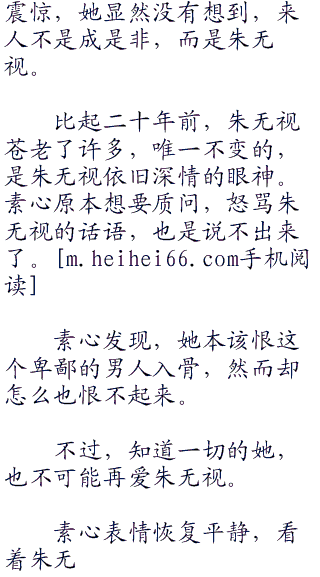 震惊，她显然没有想到，来
人不是成是非，而是朱无
视。
比起二十年前，朱无视
苍老了许多，唯一不变的，
是朱无视依旧深情的眼神。
素心原本想要质问，怒骂朱
无视的话语，也是说不出来
了。[m.heihei66.com手机阅
读]
素心发现，她本该恨这
个卑鄙的男人入骨，然而却
怎么也恨不起来。
不过，知道一切的她，
也不可能再爱朱无视。
素心表情恢复平静，看
着朱无